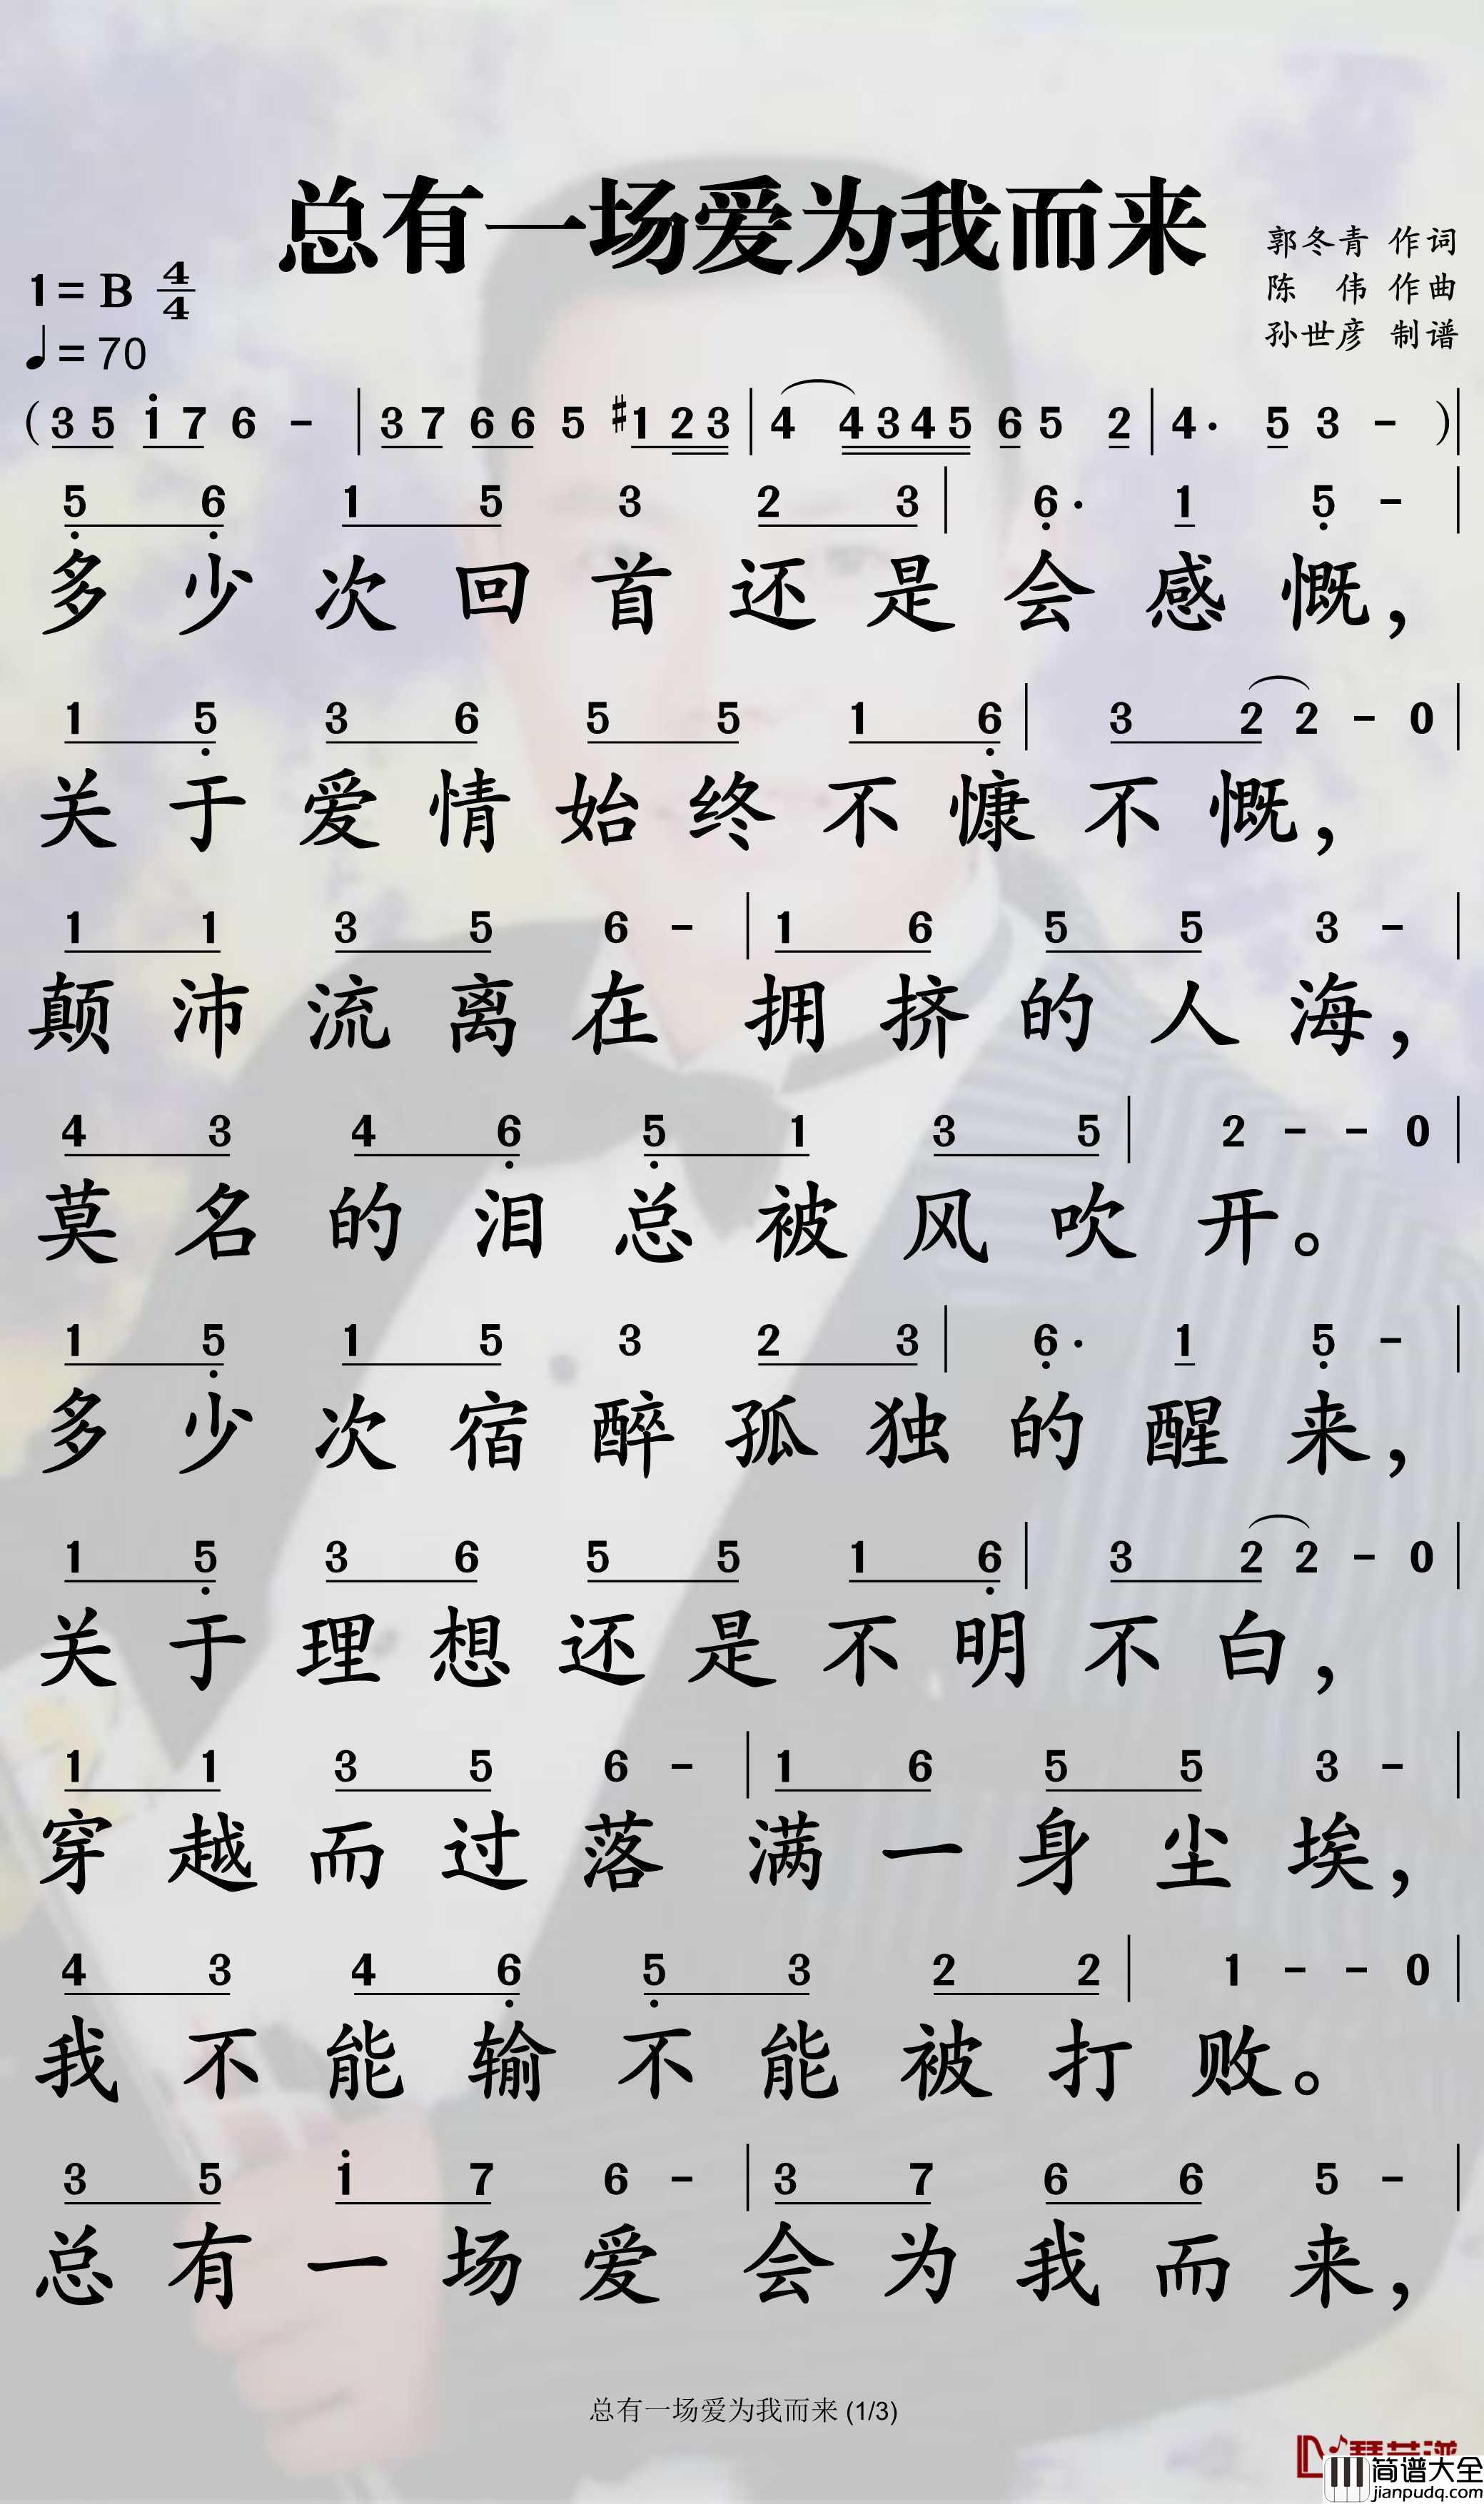 总有一场爱为我而来
郭冬青 作词
陈 伟 作曲
孙世彦 制谱
1= B 4/4
♩= 70
( 3 5 1̇ 7 6 - | 3 7 6 6 5 #1 2 3 | 4 4 3 4 5 6 5 2 | 4 · 5 3 - ) |
5̣ 6̣ 1 5 3 2 3 | 6̣ · 1 5̣ - |
多 少 次 回 首 还 是 会 感 慨，
1 5̣ 3 6 5 5 1 6̣ | 3 2 2 - 0 |
关 于 爱 情 始 终 不 慷 不 慨，
1 1 3 5 6 - | 1 6 5 5 3 - |
颠 沛 流 离 在 拥 挤 的 人 海，
4 3 4 6̣ 5̣ 1 3 5 | 2 - - 0 |
莫 名 的 泪 总 被 风 吹 开。
1 5̣ 1 5 3 2 3 | 6̣ · 1 5̣ - |
多 少 次 宿 醉 孤 独 的 醒 来，
1 5̣ 3 6 5 5 1 6̣ | 3 2 2 - 0 |
关 于 理 想 还 是 不 明 不 白，
1 1 3 5 6 - | 1 6 5 5 3 - |
穿 越 而 过 落 满 一 身 尘 埃，
4 3 4 6̣ 5̣ 3 2 2 | 1 - - 0 |
我 不 能 输 不 能 被 打 败。
3 5 1̇ 7 6 - | 3 7 6 6 5 - |
总 有 一 场 爱 会 为 我 而 来，
总有一场爱为我而来 (1/3)
简谱大全
jianpudq.com